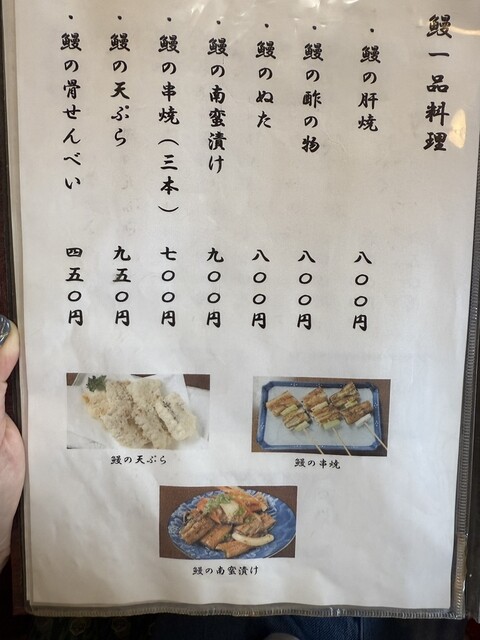 鰻一品料理
・鰻の肝焼 八〇〇円
・鰻の酢の物 八〇〇円
・鰻のぬた 八〇〇円
・鰻の南蛮漬け 九〇〇円
・鰻の串焼(三本) 七〇〇円
・鰻の天ぷら 九五〇円
・鰻の骨せんべい 四五〇円
鰻の天ぷら
鰻の串焼
鰻の南蛮漬け